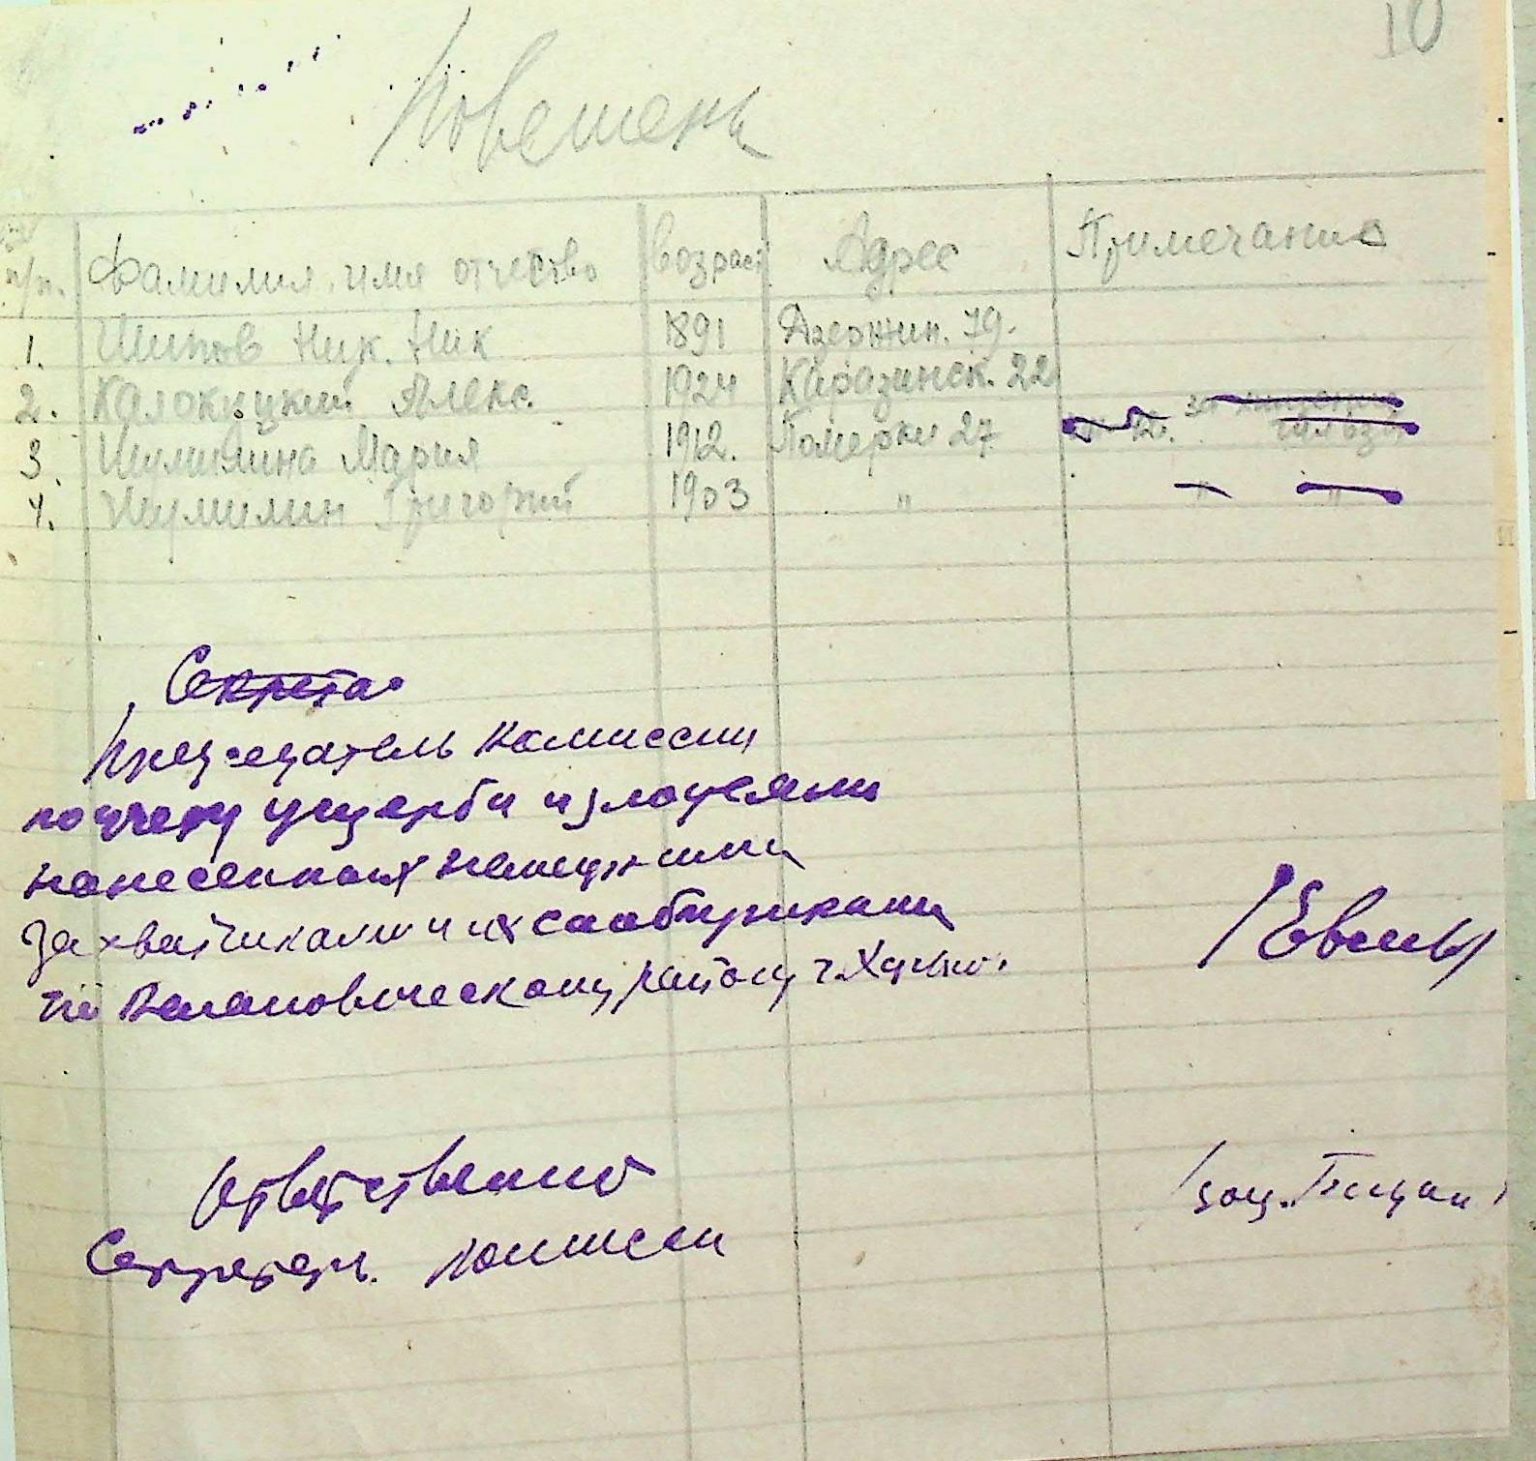 10
Повешены
п/п. Фамилия, имя отчество возраст Адрес Примечание
1. Шипов Ник. Ник 1891 Дзержин. 79.
2. Калокуцкий Алекс. 1924 Каразинск. 22
3. Шумилина Мария 1912. Померки 27 за хищение
гильз
4. Шумилин Григорий 1903 " " "
Секрета
Председатель комиссии
по учету ущерба и злодеяний
нанесенных немецкими
захватчиками и их сообщниками
по Кагановическому району г. Харько
Ответственный
Секретарь. комиссии